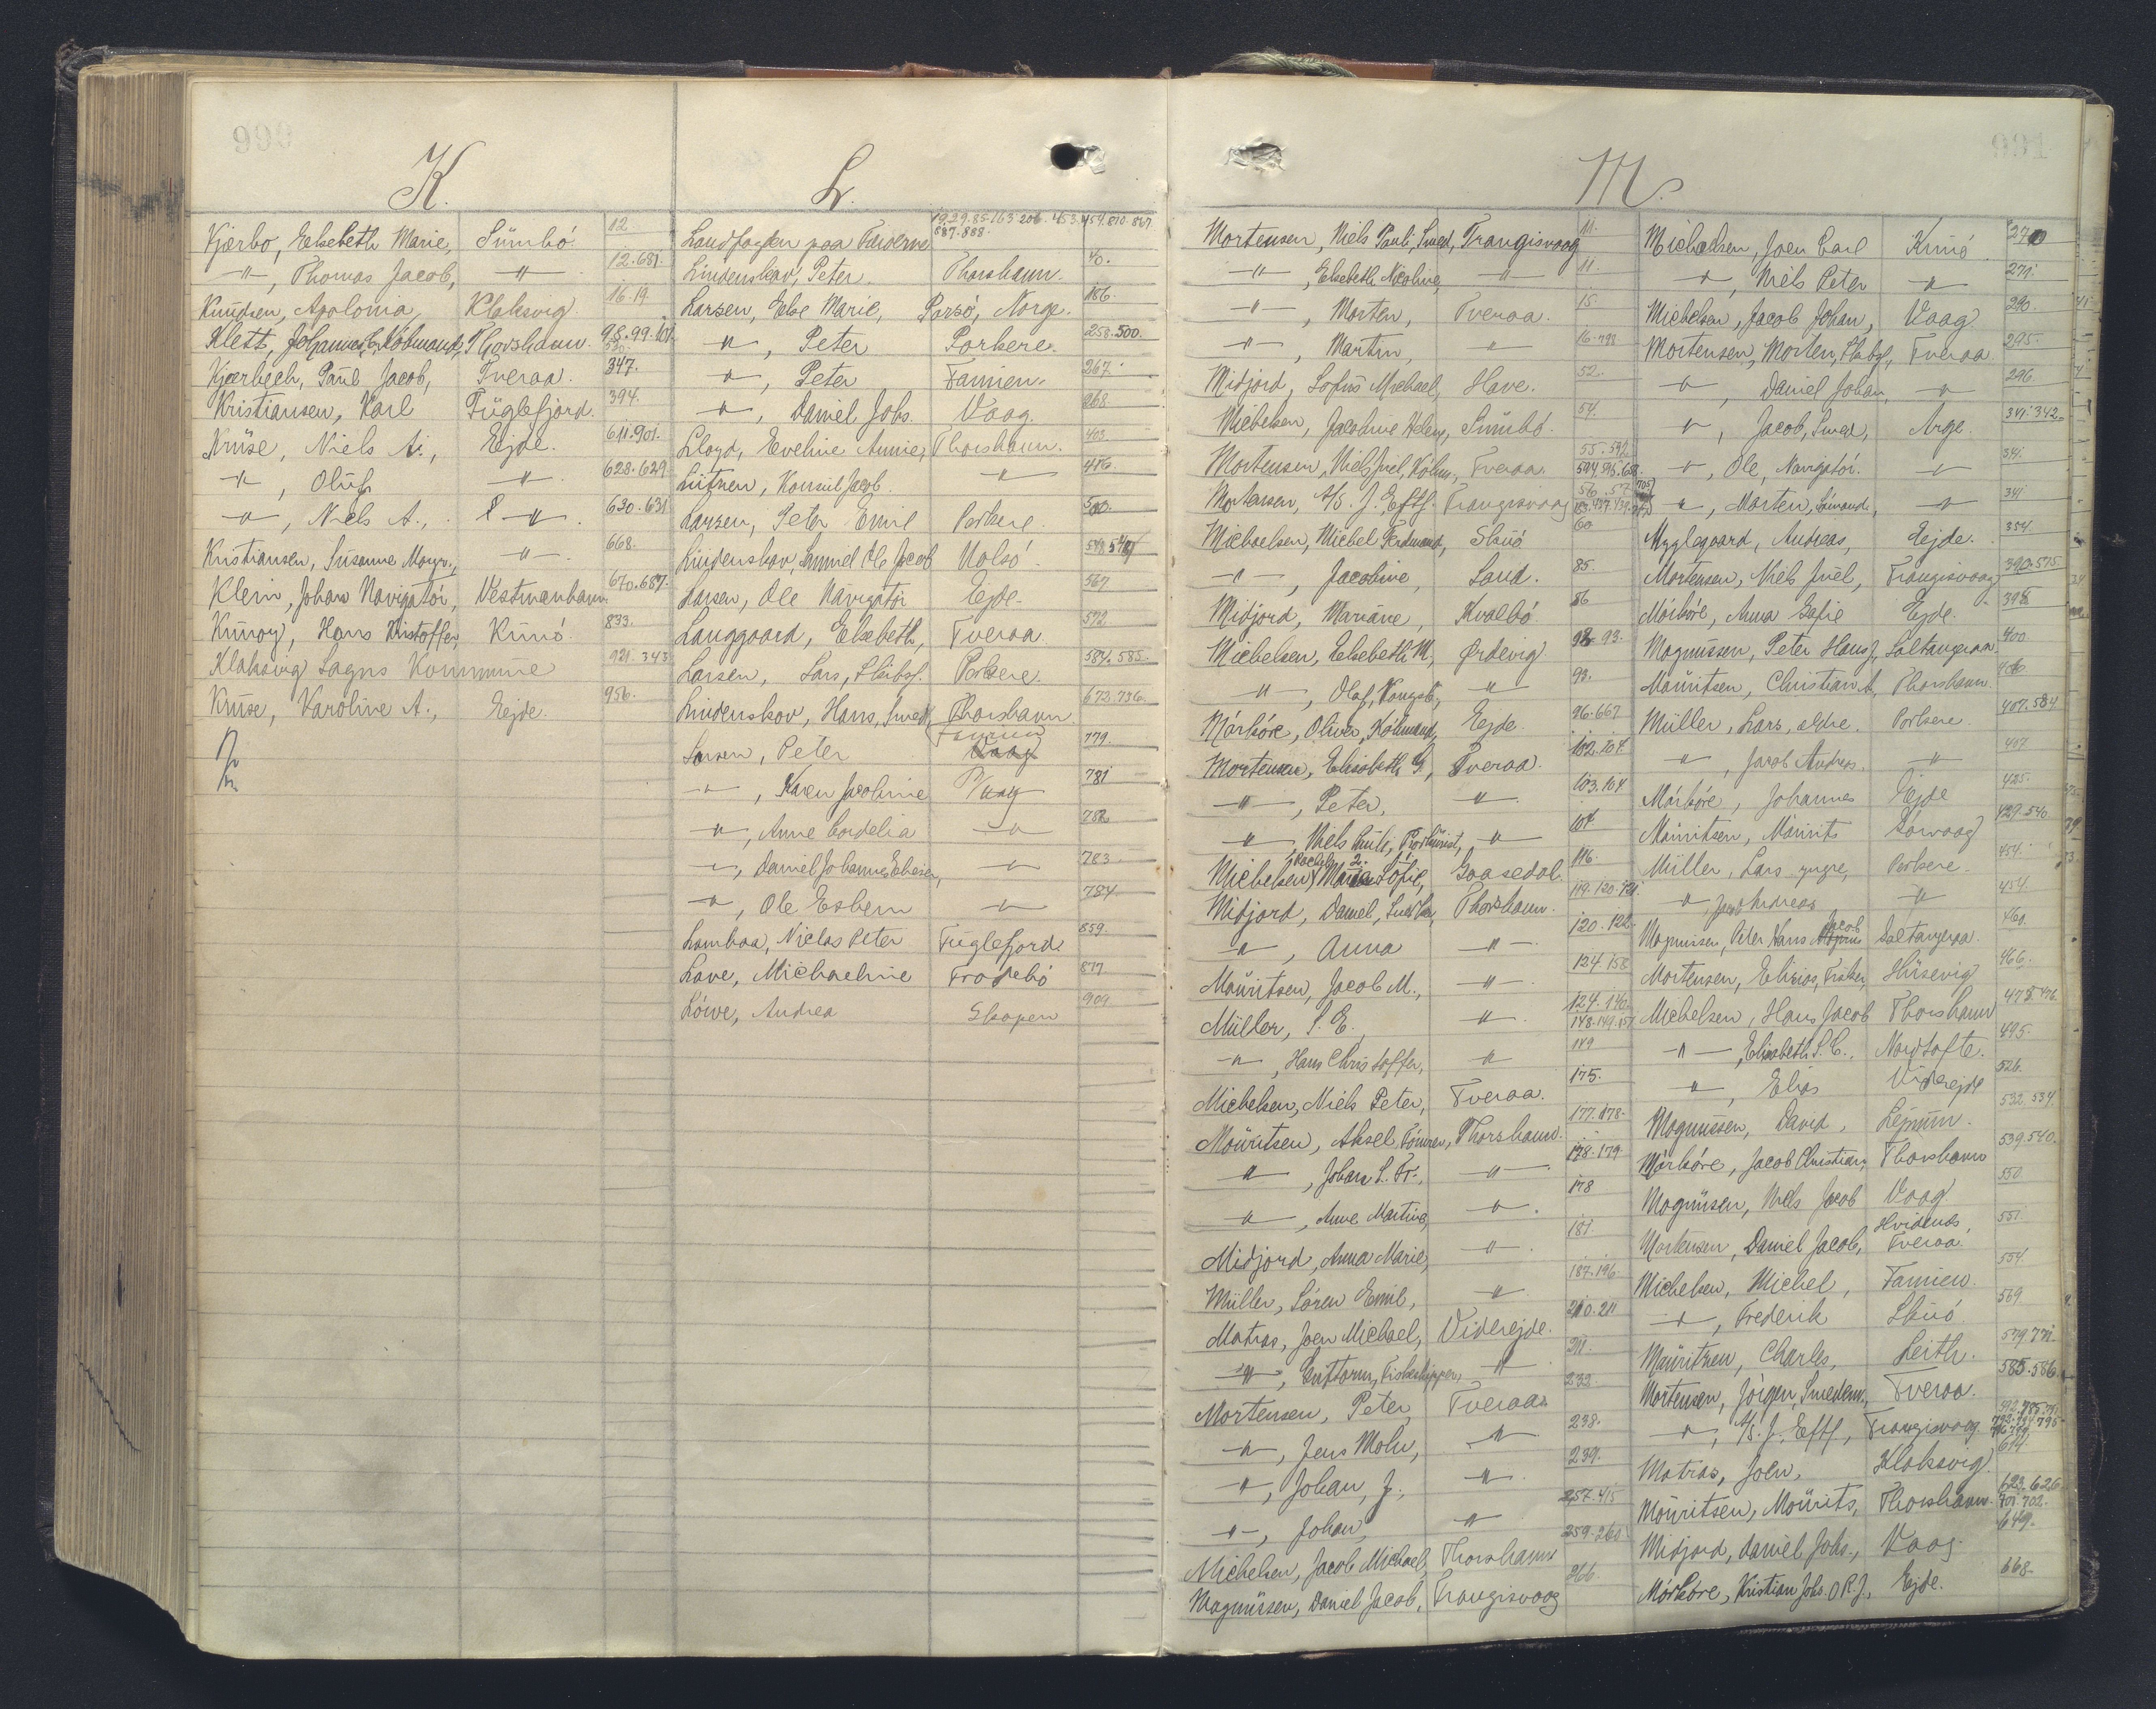 999
K.
Kjærbo, Elsebeth Marie, Sümbö 12.
—"—, Thomas Jacob, —"— 12.681.
Knüdsen, Apolonia, Klaksvig 16.19
Klett, Johannes E. Købmand, Thorshavn. 98.99.101.
Kjærbech, Paül Jacob, Tveraa. 347.
Kristiansen, Karl Füglefjord. 394.
Krüse, Niels A., Ejde. 611.901.
—"—, Olüf —"— 628.629
—"—, Niels A., —"— 630.631
Kristiansen, Süsanne Margr., —"— 668.
Klein, Johan Navigatör, Vestmanhavn 670.687.
Künoy, Hans Kristoffer, Künö 833.
Klaksvig Sagns Kommüne 921.343
Krüse, Karoline A., Ejde 956.
L.
Landfogden paa Færöerne 19.29.85.163.206.453.454.810.867
887.888.
Lindenskov, Peter Thorshavn. 40.
Larsen, Else Marie, Porsö, Norge. 186.
—"—, Peter Porkere. 258.500.
—"—, Peter Famien. 267.
—"—, Daniel Johs. Vaag. 268
Lloyd, Eveline Annie, Thorshavn. 403.
Lützen, Konsül Jacob —"— 416.
Larsen, Peter Emil Porkere 500.
Lindenskov, Samüel Ole Jacob Nolsö 548.549
Larsen, Ole Navigatör Ejde 567
Langgaard, Elsebeth, Tveraa. 572.
Larsen, Lars, Skibsf. Porkere. 584.585.
Lindenskov, Hans, Smed, Thorshavn 673.736.
Larsen, Peter Famien 779.
—"—, Karen Jacobine Vaag 781
—"—, Anne Cordelia —"— 782
—"—, Daniel Johannes Eliesar, —"— 783
—"—, Ole Esbern —"— 784
Lamhaa, Niclas Peter Füglefjord 859.
Lave, Michaeline Frodebö 877
Löwe, Andrea Skopen 909
991
M.
Mortensen, Niels Pauli, Smed, Trangisvaag 11.
—"—, Elsebeth Nicoline, —"— 11
—"—, Morten, Tveraa. 15.
—"—, Martin, —"— 16.798
Midjord, Sofüs Michael, Hove. 52.
Michelsen, Jacobine Helene, Sümbö. 54.
Mortensen, Niels Jüel, Købm., Tveraa. 55.
Mortensen, A/S. J. Eftf. Trangisvaag 56.57
Michaelsen, Michel Ferdinand, Sküö 60
—"—, Jacobine, Sand. 85.
Midjord, Mariane, Kvalbö. 86
Michelsen, Elsebeth M, Ördevig 92.93.
—"—, Olaf, Kongsb., —"— 93.
Mörköre, Oliver, Købmand, Ejde. 96.667
Mortensen, Elisabeth G., Tveraa. 102.104
—"—, Peter, —"— 103.104
—"—, Niels Paüli, Prokürist, —"— 104
Michelsen, Rachel Maria Sofie, Gaasedal. 116.
Midjord, Daniel, Thorshavn. 119.120.121.
—"—, Anna —"— 120.122.
Möüritsen, Jacob M., —"— 124.158
Müller, S. E. —"— 124.140.
148.149.157
—"—, Hans Christoffer, —"— 149
Michelsen, Niels Peter, Tveraa. 175.
Möüritsen, Aksel Tömrer, Thorshavn. 177.178.
—"—, Johan S. Fr., —"— 178.179
—"—, Anne Martine, —"— 178
Midjord, Anna Marie, —"— 181.
Müller, Sören Emil, —"— 187.196
Matras, Joen Michael, Viderejde. 210.211
—"—, Güttorm, Fiskeskipper, —"— 211.
Mortensen, Peter Tveraa 232.
—"—, Jens Mohr, —"— 238.
—"—, Johan, J., —"— 239.
—"—, Johan, —"— 257.415
Michelsen, Jacob Michael, Thorshavn 259.260.
Magnüssen, Daniel Jacob, Trangisvaag 266.
Michelsen, Joen Carl Künö 270
—"—, Niels Peter —"— 271.
Michelsen, Jacob Johan, Vaag 290.
Mortensen, Morten, Skibsf., Tveraa 295.
—"—, Daniel Johan, —"— 296.
—"—, Jacob, Smed, Arge. 341.342.
—"—, Ole, Navigatör. —"— 341.
—"—, Morten, Sömand, —"— 341
Mygleggaard, Andreas, Ejde. 354
Mortensen, Niels Jüel, Trangisvaag 390.575
Mörköre, Anna Sofie Ejde. 398
Magnüssen, Peter Hans J, Saltangeraa. 400.
Möüritsen, Christian A, Thorshavn. 406
Müller, Lars, ældre. Porkere 407.584
—"—, Jacob Andreas. —"— 407
Mörköre, Johannes Ejde 425.
Möüritsen, Möürits Sörvaag 429.540.
Müller, Lars yngre, Porkere. 454
—"—, Jacob Andreas —"— 454.
Magnüssen, Peter Hans Jacob Saltangeraa. 460.
Mortensen, Elirias, Fisker, Hüsevig 466.
Michelsen, Hans Jacob Thorshavn 475.476.
—"—, Elisabeth S. C., Nordtofte. 495.
—"—, Elias Viderejde 526.
Magnüssen, David, Lejnüm. 532.534
Mörköre, Jacob Christian, Thorshavn 539.540.
Magnüsen, Niels Jacob Vaag 550.
Mortensen, Daniel Jacob, Hvidenæs, Tveraa 551.
Michelsen, Michel, Famien. 554
—"—, Frederik Sküö 569
Möüritzen, Charles, Leith. 579.771.
Mortensen, Jörgen, Smedem., Tveraa. 585.586.
—"—, A/S. J. Eftf, Trangisvaag.
Matras, Joen, Klaksvig 614
Möüritsen, Möürits, Thorshavn. 623.626
701.702.
Midjord, daniel Johs., Vaag. 649.
Mörköre, Kristian Johs. O. R. J., Ejde. 668.